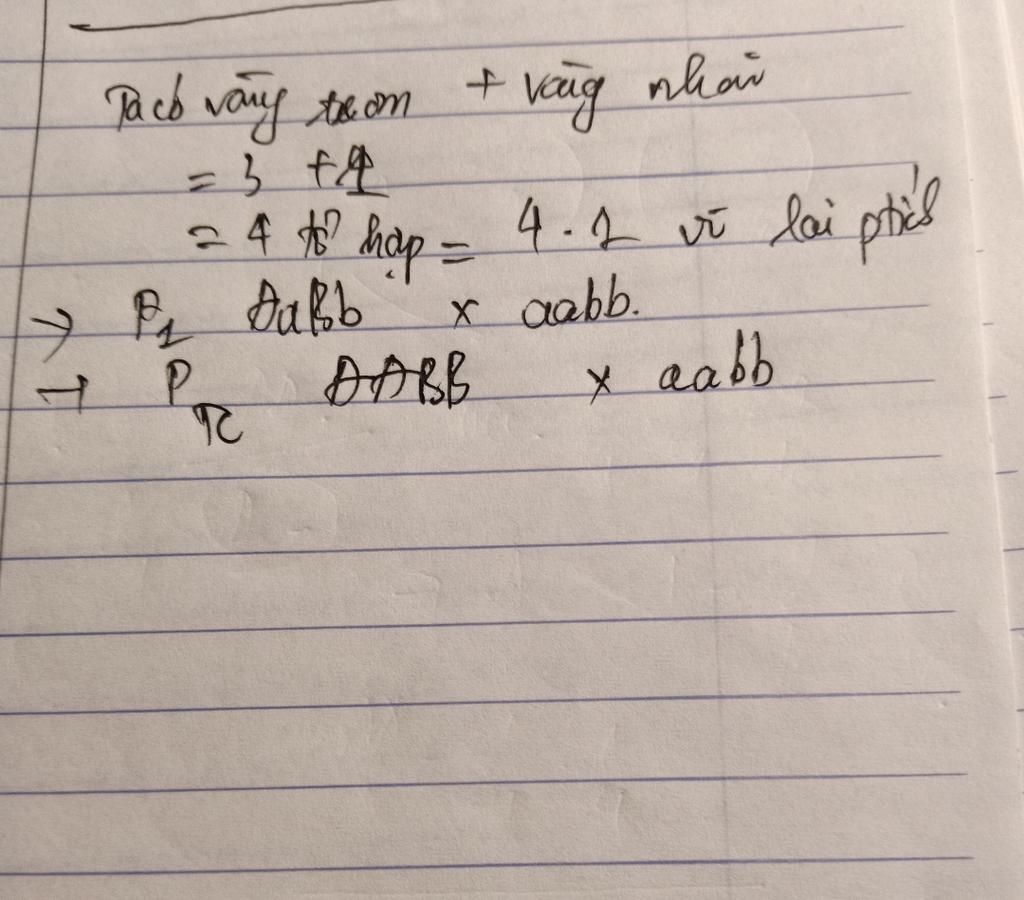 Ta có vàng trơn + vàng nhăn
= 3 + 1
= 4 tổ hợp = 4.1 vì lai phtích
→ F1 AaBb x aabb.
→ P TC AABB x aabb